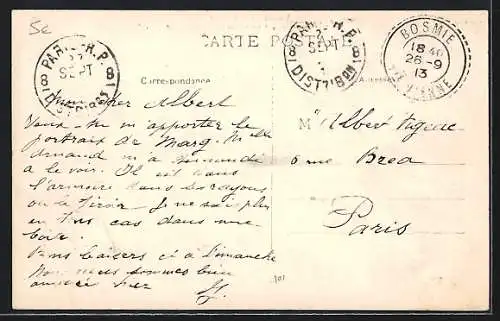 5c
CARTE POSTALE
Correspondance
PARIS R.P.
SEPT
8 8
DISTRIB
PARIS R.P.
SEPT
8 8
DISTRIB
BOSMIE
18 40
26-9
13
VIENNE
Mon cher Albert
Veux-tu m'apporter le
portrait de Marg.
demand
à le voir. Il est dans
l'armoire dans les rayons
ou le tiroir Je ne sais plus
en tous cas dans une
boite.
Bons baisers et à Dimanche
Nous sommes bien
hier
Mr Albert
6 rue Brea
Paris
101